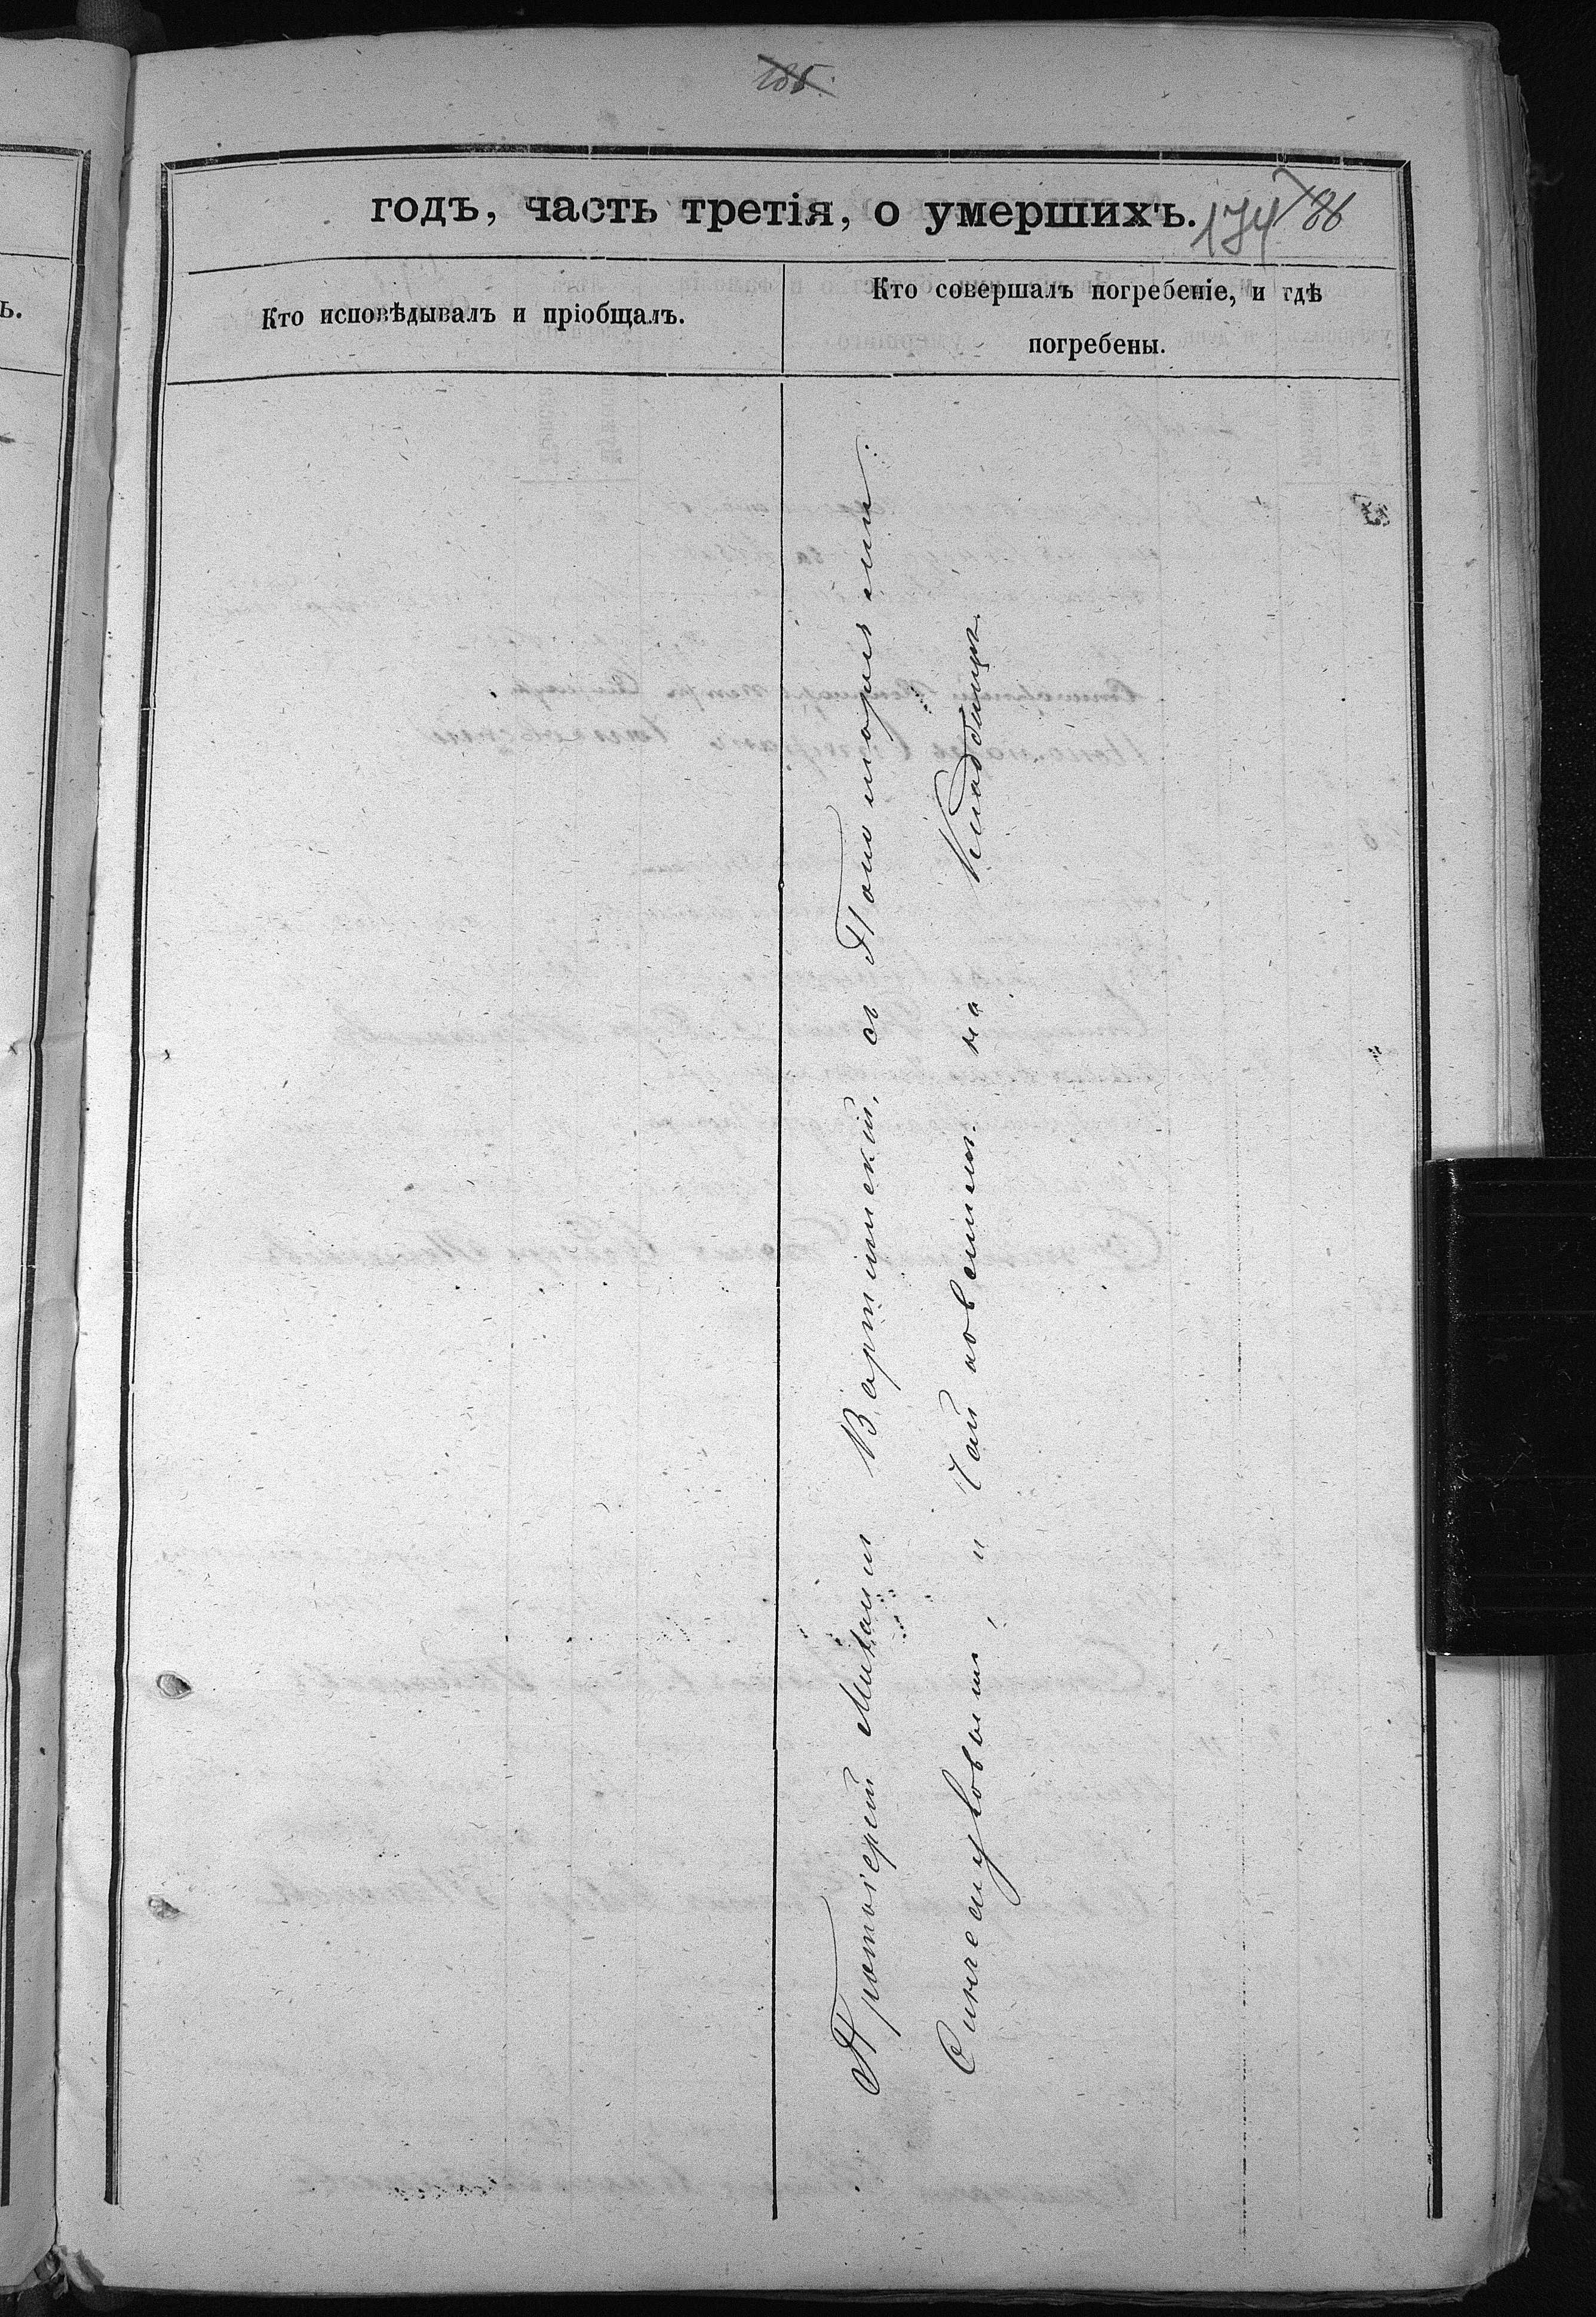 185.
годъ, часть третія, о умершихъ. 174 86
Кто исповѣдывалъ и пріобщалъ.
Кто совершалъ погребеніе, и гдѣ
погребены.
Протоіерей Михаилъ Вартминскій, съ Пономорями
и Чайковскимъ на Кладбищѣ.
ъ.